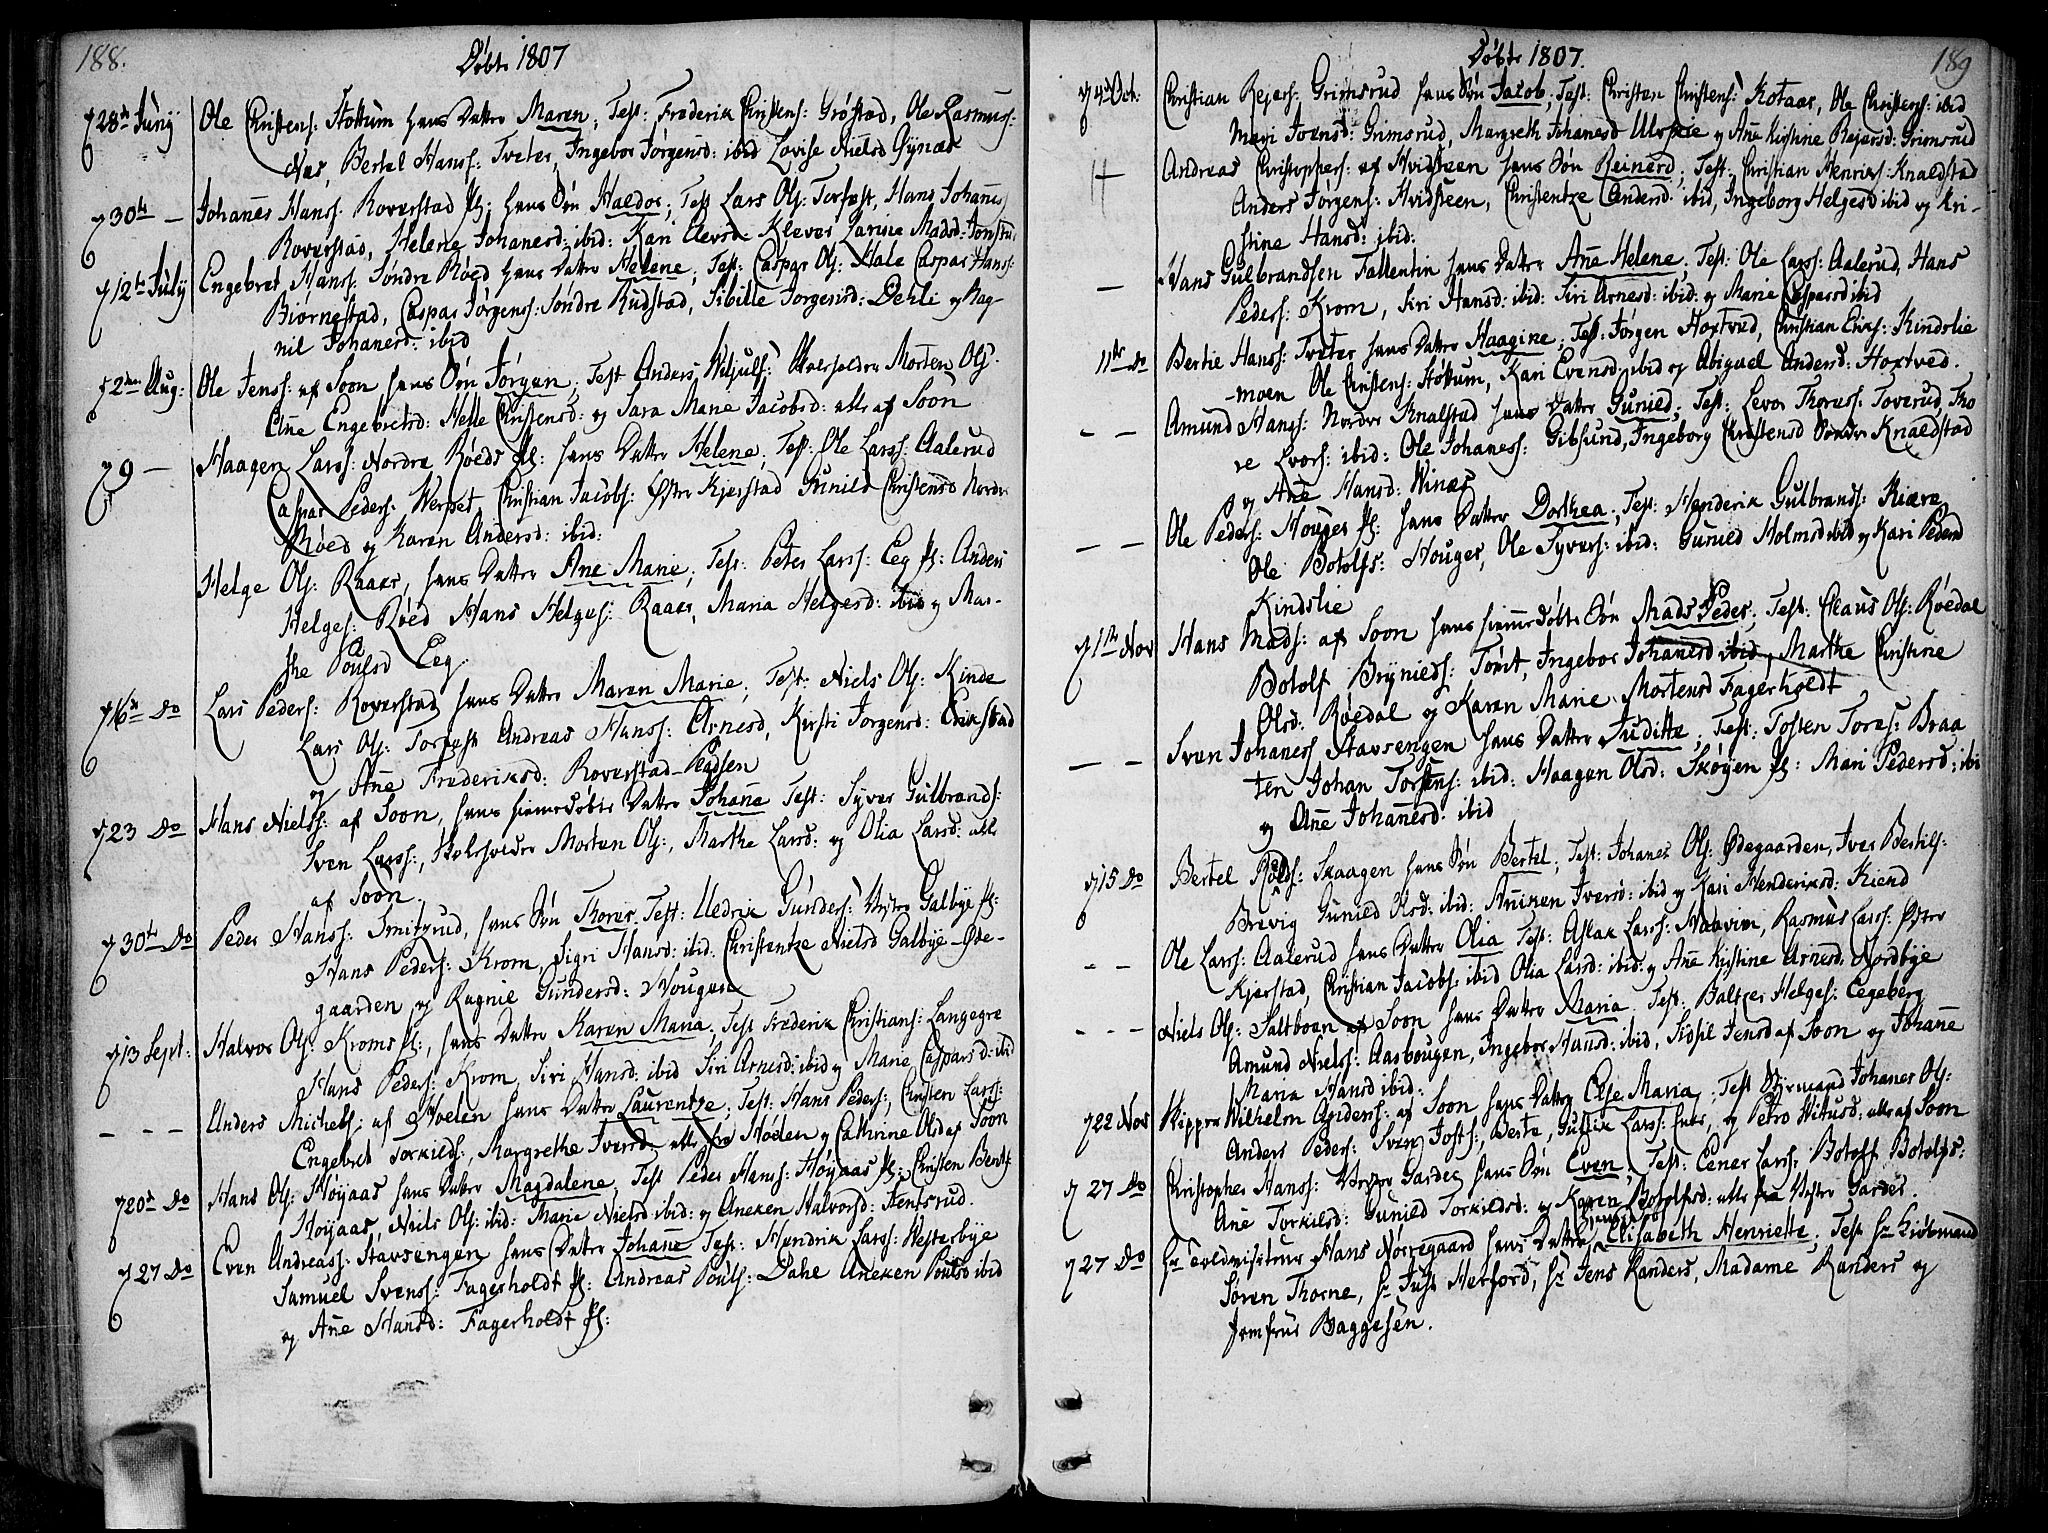 188.
Døbte 1807
d 28de Juny Ole Christens: Stottum hans Datter Maren; Test: Frederik Christens: Grøstad, Ole Rasmuss:
Næs, Bertel Hanss: Tveter, Ingebor Jørgensd: ibid Lovise Nielsd
d 30te — Johannes Hanss: Roverstad Pl: hans Søn Haldor; Test Lars Ols: Torfest, Hans Johannes:
Roverstad, Helene Johanesd: ibid: Kari Elevsd: Klever Larine Madsd:
d 12te July Engebret Hanss: Søndre Røed hans Datter Helene; Test: Caspar Ols: Hale Caspar Hanss:
Biørnestad, Caspar Jørgenss: Søndre Rudstad, Sibille Jorgensd: Dehli og Rag-
nil Johanesd: ibid
d 2den Aug: Ole Jenss: af Soon hans Søn Jørgen; Test Anders Morten Ols:
Ane Engebretsd: Helle Christensd: og Sara Marie Jacobsd: alle af Soon
d 9 — Haagen Larss: Nordre Røeds Pl: hans Datter Helene; Test: Ole Larss: Aalerud
Caspar Peders: Werpet, Christian Jacobs: Østre Kjerstad Gunild Christensd Nordre
Røed og Karen Andersd: ibid:
Helge Ols: Raaer, hans Datter Ane Marie; Test: Peter Larss: Eeg Pl: Anders
Helges: Røed Hans Helges: Raaer, Maria Helgesd: ibid og Mar-
the Poulsd Eeg
d 16de Do Lars Peders: Roverstad hans Datter Maren Marie; Test: Niels Ols: Kinde
Lars Ols: Torfest Andreas Hanss: Arnesd, Kirsti Jorgensd: Erikstad
og Ane Frederiksd: Roverstad-Pladsen
d 23 Do Hans Nielss: af Soon, hans hiemedøbte Datter Johane Test: Syver Gulbrands:
Sven Larss:, Morten Ols:, Marthe Larsd: og Olia Larsd: alle
af Soon.
d 30te Do Peder Hanss: Smitsrud, hans Søn Thorer; Test: Uldrik Gunders: Vestre Galbye Pl:
Hans Peders: Krom, Sigri Hansd: ibid: Christentze Nielsd Galbye-Øde-
gaarden og Ragnil Gundersd: Hougen
d 13 Sept: Halvor Ols: Kroms Pl:, hans Datter Karen Maria; Test Frederik Christians: Langegre
Hans Peders: Krom, Siri Hansd: ibid Siri Arnesd: ibid og Marie Caspars d: ibid
— — — Anders Michels: af Hoelen hans Datter Laurentze; Test: Hans Peders:, Christen Larss:
Engebret Torkilds:, Margrethe Iversd alle fra Hoelen og Cathrine Olsd af Soon
d 20de Do Hans Ols: Høyaas hans Datter Magdalene; Test Peder Hanss: Høyaas Pl: Christen Bents:
Høyaas, Niels Ols: ibid: Marie Nielsd ibid: og Aneken Halvorsd: Hensrud.
d 27 Do Even Andreass: Stavsengen hans Datter Johane Test: Hendrik Larss: Westerbye
Samuel Svenss: Fagerholdt Pl: Andreas Pouls: Dahe Aneken Poulsd ibid
og Ane Hansd: Fagerholdt Pl:
Døbte 1807.
189
d 4de Oct: Christian Rejers: Grimsrud hans Søn Jacob; Test: Christen Christens: Kotaar, Ole Christens: ibid
Mari Joensd: Grimsrud, Margreth Johanesd Ulvsie og Ane Kirstine Rejersd: Grimsrud
Andreas Christophers: af Hvidsteen hans Søn Reinerd; Test: Christian Henriks: Knaldstad
Anders Jørgens: Hvidsteen, Christentze Andersd: ibid, Ingeborg Helgesd ibid og Kri-
stine Hansd: ibid:
— Hans Gulbrandsen Fallentin hans Datter Ane Helene; Test: Ole Larss: Aalerud, Hans
Peders: Krom, Siri Hansd: ibid: Siri Arnesd: ibid: og Marie Caspersd ibid
11te Do Bertie Hanss: Tveter hans Datter Haagine; Test: Jørgen Hoxtved, Christian Eriks: Kindslie
moen Ole Christens: Stottum, Kari Evensd: ibid og Abiguel Andersd: Hoxtved.
— — Amund Hanss: Nordre Knalstad hans Datter Gunied; Test: Levor Thoress: Toverud, Tho
re Lvors: ibid: Ole Johaness: Gibsund, Ingeborg Christensd Søndre Knaldstad
og Ane Hansd: Winæs
— — Ole Peders: Houges Pl: hans Datter Dorthea; Test: Henderik Gulbrands: Kiære
Ole Botolfs: Houger, Ole Syvers: ibid: Gunied Holmsd ibid og Kari Pedersd
Kindslie
d 1ste Nov Hans Mads: af Soon hans hiemedøbte Søn Mads Peder; Test: Claus Ols: Røedal
Botolf Brynieds: Tomt, Ingebor Johanesd ibid, Marthe Christine
Olsd: Røedal og Karen Marie Mortensd Fagerholdt
— — Sven Johaness Stavsengen hans Datter Juditte; Test: Tosten Tores: Braa
ten Johan Torstens: ibid: Haagen Olsd: Skøyen Pl: Mari Pedersd: ibi
og Ane Johanesd: ibid
d 15 Do Bertel Roldss: Skaagen hans Søn Bertel; Test: Johanes Ols: Ødegaarden, Iver Bertils:
Brevig Gunied Olsd: ibid: Aniken Iversd: ibid og Kari Henderiksd: Kiend
- - Ole Larss: Aalerud hans Datter Olia Test: Aslak Larss: Haavim, Rasmus Larss: Østre
Kjerstad, Christian Jacobs: ibid Olia Larsd: ibid: og Ane Kistine Arnesd: Nordbye
- - - Niels Ols: Saltboen af Soon hans Datter Maria; Test: Baltzer Helges: Eegeberg
Amund Nielss: Aasbougen, Ingebor Hansd: ibid, Sissil Jensd af Soon og Johane
Maria Hansd ibid:
d 22 Nov Skipper Wilhelm Anders: af Soon hans Datter Else Maria; Test Styrmand Johanes Ols:
Anders Peders: Sven Josts:, Berte, Gullik Larss: og Petro alle af Soon
d 27 Do Christopher Hanss: Vestre Garder hans Søn Even; Test: Eener Larss: Botolf Botolfs:
Ane Torkilsd: Gunied Torkildsd: og Karen Botolfsd: alle fra Vestre Garder.
d 27 Do Hr Toldvisiteur Hans Nørregaard hans Datter Elisabeth Henriette; Test: Hr Kiøbmand
Søren Thorne, Hr Just Herford, Hr Jens Randers, Madame Randers og
Jomfrue Baggesen.